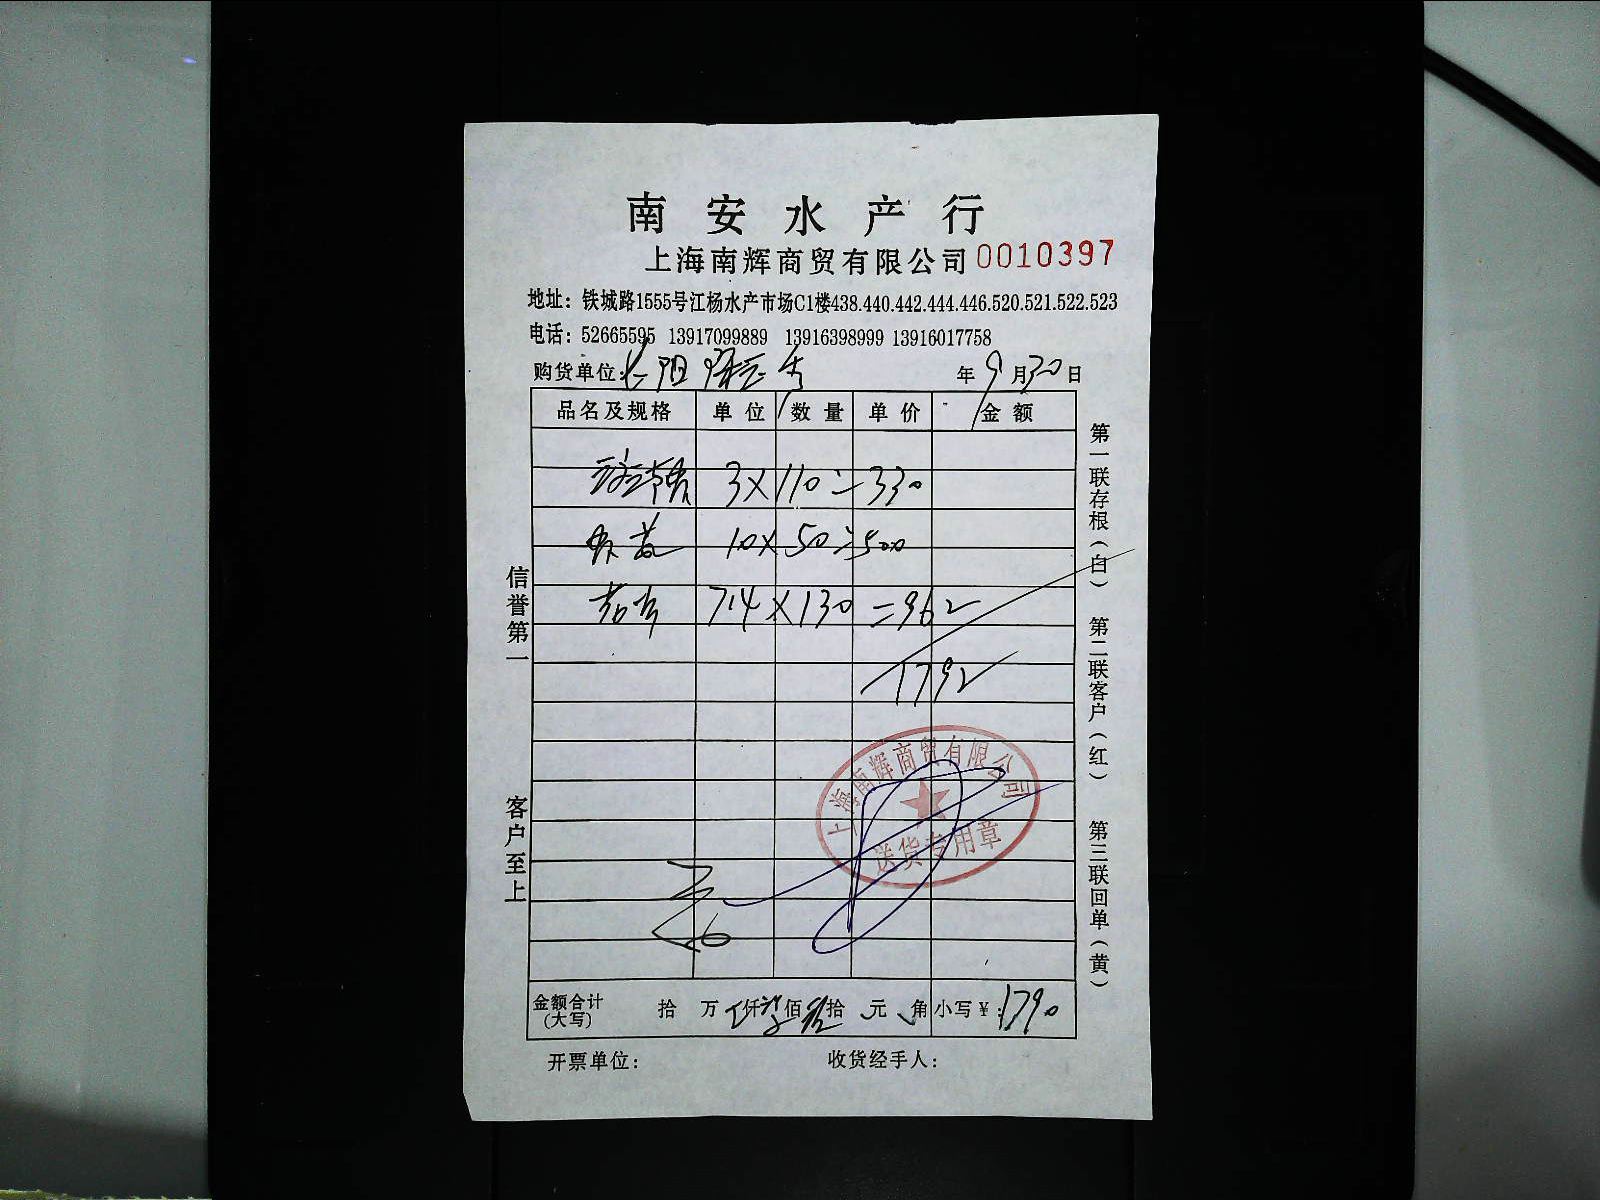 南安水产行
上海南辉商贸有限公司 0010397
地址：铁城路1555号江杨水产市场C1楼438.440.442.444.446.520.521.522.523
电话：52665595 13917099889 13916398999 13916017758
购货单位： 年 9 月 30 日
品名及规格 单位 数量 单价 金额
3 × 110 = 330
10 × 50 = 500
7.4 × 130 = 962
1792
上海南辉商贸有限公司
送货专用章
金额合计（大写） 拾 万 仟 佰 拾 元 角 小写￥：1790
开票单位： 收货经手人：
信誉第一
客户至上
第一联存根（白） 第二联客户（红） 第三联回单（黄）